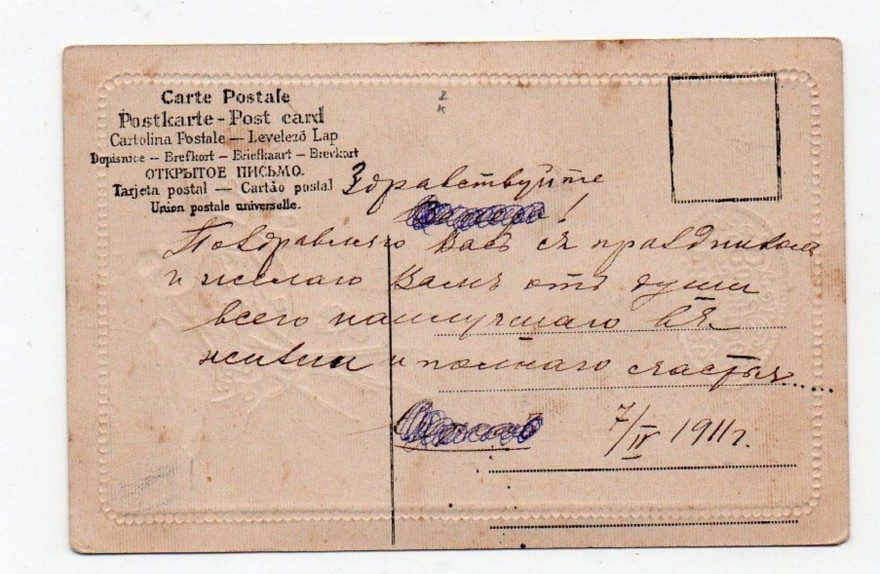 Carte Postale
Postkarte - Post card
Cartolina Postale — Levelező Lap
Dopisnice — Brefkort — Briefkaart — Brevkort
ОТКРЫТОЕ ПИСЬМО.
Tarjeta postal — Cartão postal
Union postale universelle.
Здравствуйте
!
Поздравляю Васъ съ праздникомъ
и желаю Вамъ отъ души
всего наилучшаго въ
жизни и полнаго счастья
7/IV 1911 г.